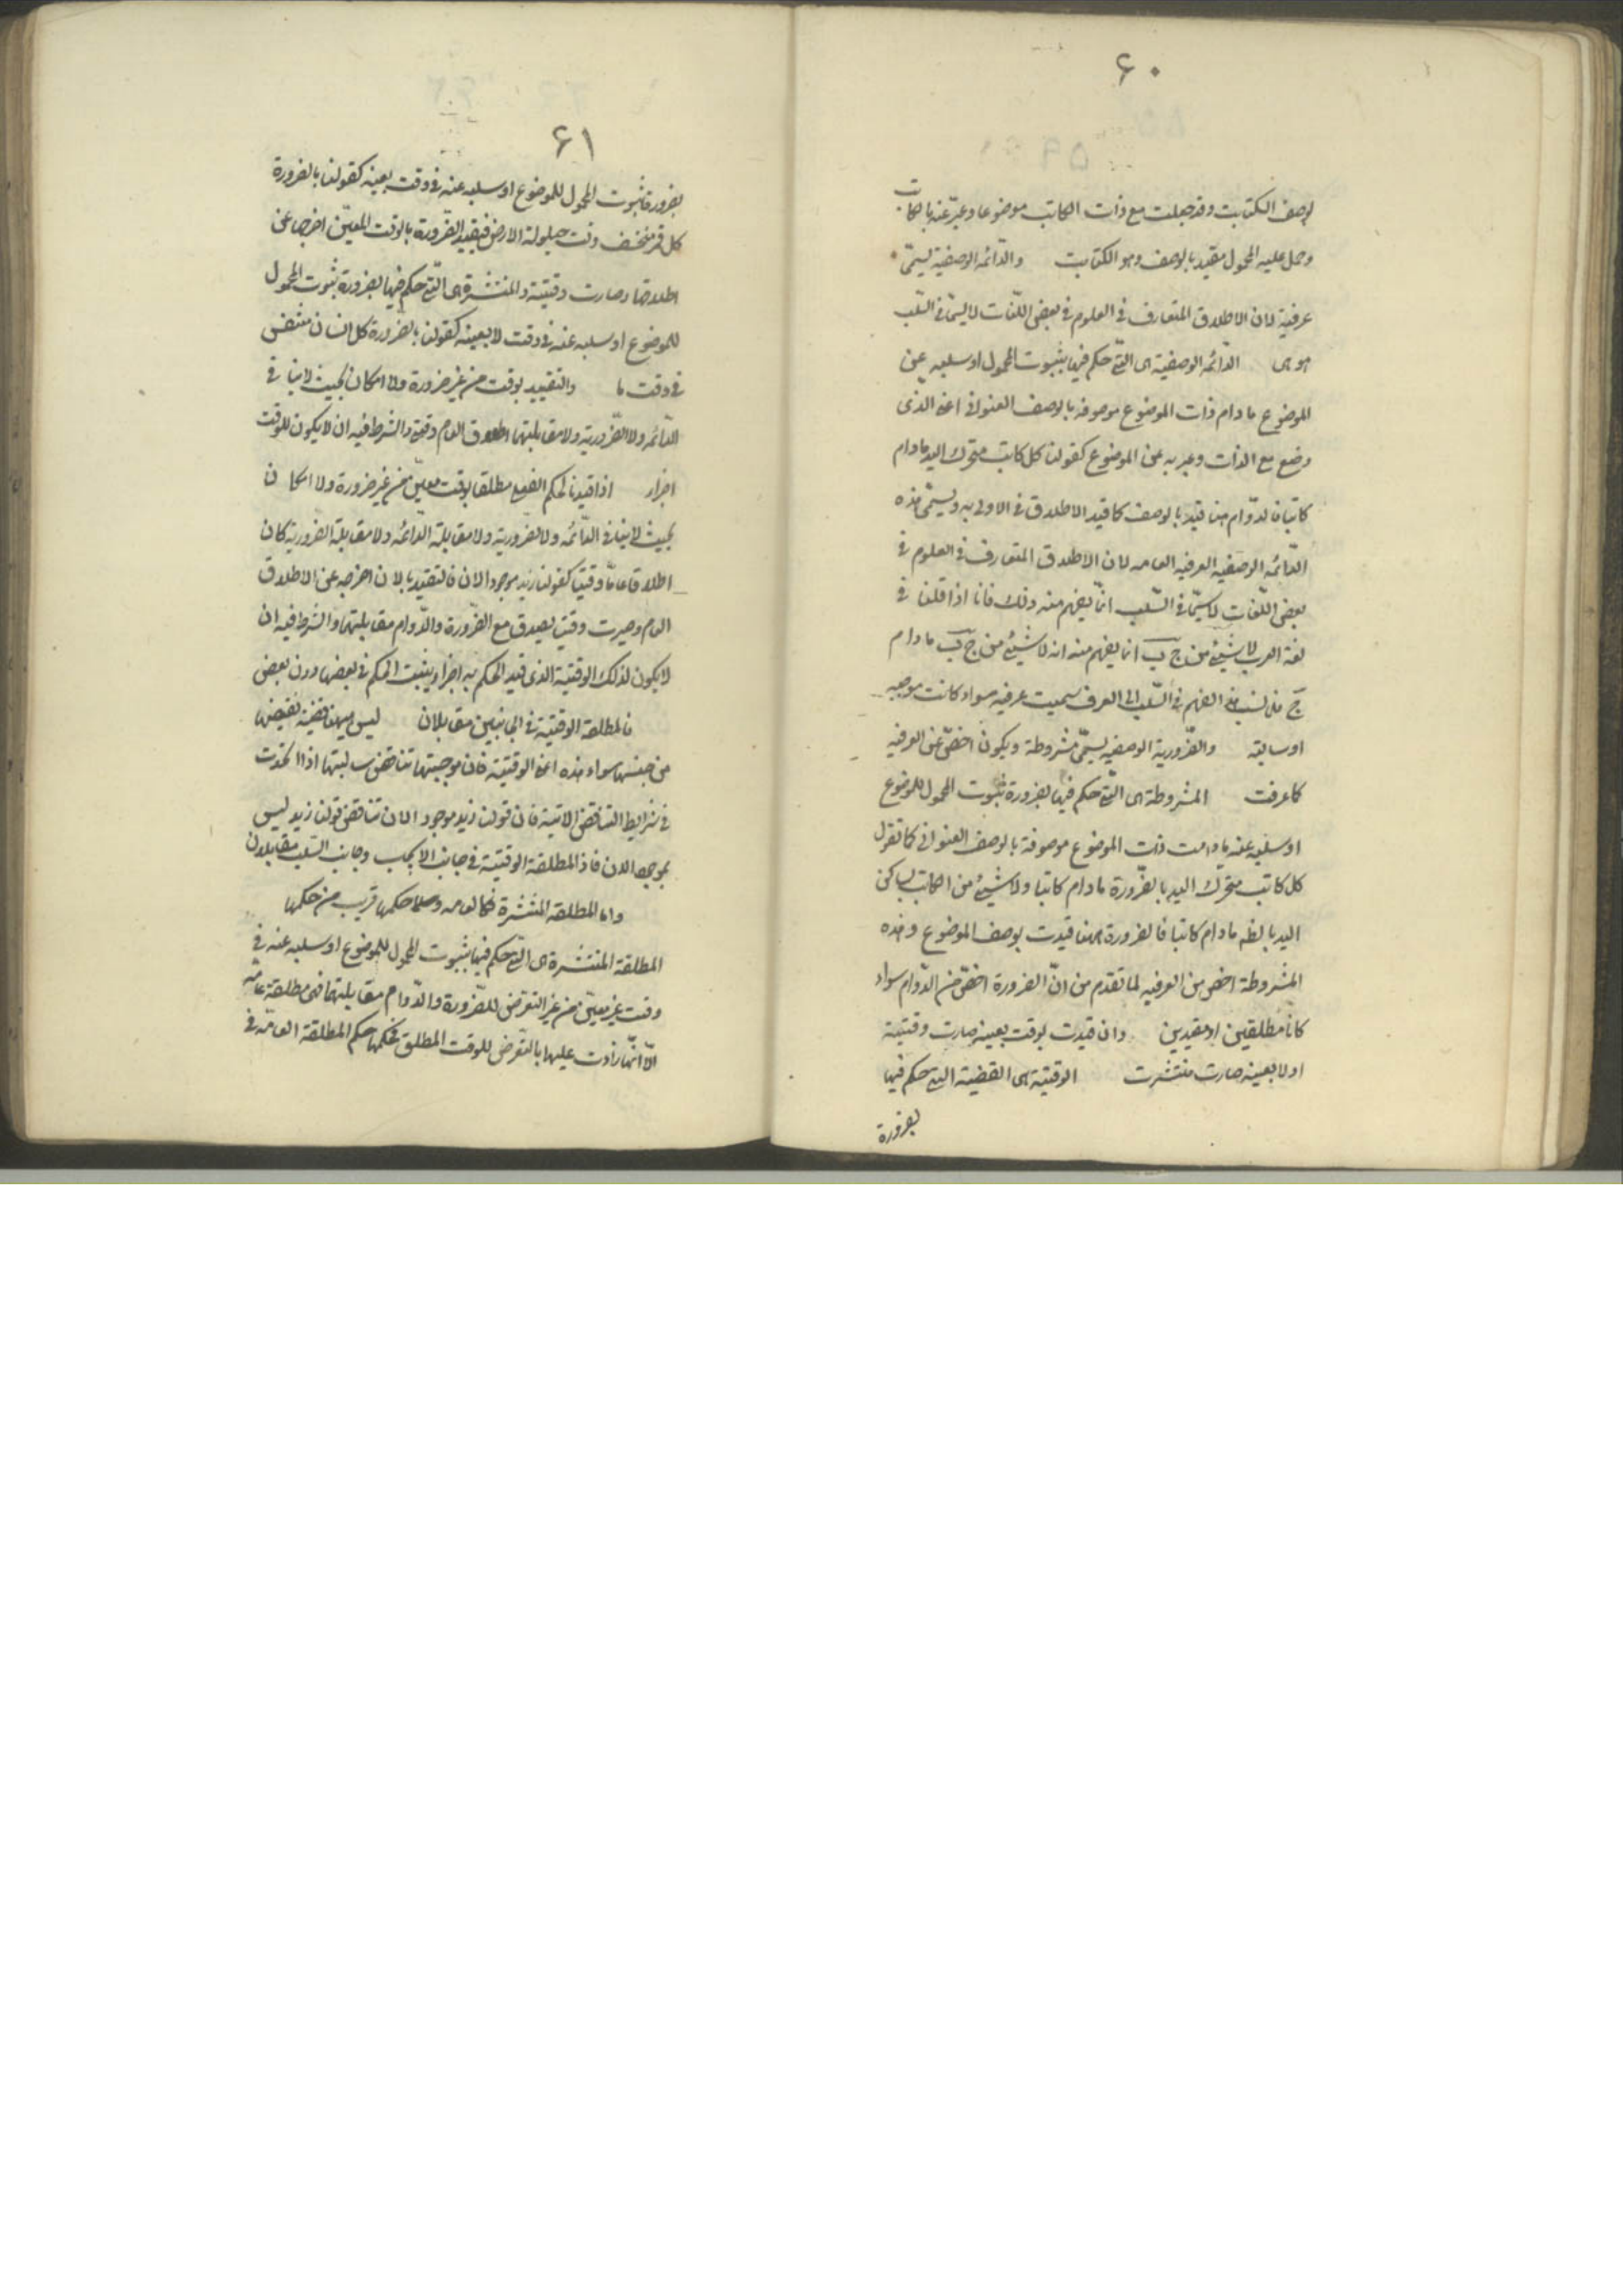 ٦٠
بوصف الكتابت وقد جعلت مع ذات الكاتب موضوعا وعبّر عنه بالكاتب
وحمل عليه المحمول مقيد بالوصف وهو الكتابت والدّائمه الوصفية يسمّى
عرفية لان الاطلاق المتعارف فى العلوم فى بعض اللّغات لا سيّما فى السّلب
هو هى الدّائمه الوصفية هى التّى حكم فيها بثبوت المحمول او سلبه عن
الموضوع ما دام ذات الموضوع موصوفه بالوصف العنوانى اعنى الذى
وضع مع الذات وعبر به عن الموضوع كقولنا كل كاتب متحرك اليد مادام
كاتبا فالدّوام هنا قيّد بالوصف كما قيد الاطلاق فى الاولى به ويسمّى هذه
الدّائمه الوصفيه العرفيه العامه لان الاطلاق المتعارف فى العلوم فى
بعض اللّغات لا سيّما فى السّلب انّما يفهم منه ذلك فانا اذا قلنا فى
لغة العرب لا شيئ من ج ب انما يفهم منه انه لا شيئ من ج ب ما دام
ج فلما نسب هذا الفهم فى السّلب الى العرف سميت عرفيه سواء كانت موجبه
او سالبه والضّرورية الوصفيه يسمّى مشروطة ويكون اخصّ من العرفيه
كما عرفت المشروطة هى التّى حكم فيها بضرورة ثبوت المحمول للموضوع
او سلبه عنه ما دامت ذات الموضوع موصوفة بالوصف العنوانى كما تقول
كل كاتب متحرّك اليد بالضّرورة ما دام كاتبا ولا شيئ من الكاتب بساكن
اليد بالضّه ما دام كاتبا فالضرورة ههنا قيدت بوصف الموضوع وهذه
المشروطة اخص من العرفيه لما تقدم من انّ الضرورة اخصّ من الدّوام سواء
كانا مطلقين او مقيدين وان قيدت بوقت بعينه صارت وقتيته
او لا بعينه صارت منتشرت الوقتية هى القضية التى حكم فيها
بضرورة
٦١
بضرورة ثبوت المحمول للموضوع او سلبه عنه فى وقت بعينه كقولنا بالضرورة
كل قمر منخسف وقت حيلولة الارض فتقييد الضّرورة بالوقت المعيّن اخرجها عن
اطلاقها وصارت وقتيتة والمنتشرة هى التّى حكم فيها بضرورة ثبوت المحمول
للموضوع او سلبه عنه فى وقت لا بعينه كقولنا بالضرورة كل انسان متنفس
فى وقت ما والتقييد بوقت من غير ضرورة ولا امكان بحيث لا ينافى
الدّائمه ولا الضّرورية ولا مقابلتهما اطلاق العام وقتى والشرط فيه ان لا يكون للوقت
اجزاء اذا قيدنا الحكم الفعلى مطلقا بوقت معيّن من غير ضرورة ولا امكان
بحيث لا ينافى الدّائمه ولا الضرورية ولا مقابلة الدائمه ولا مقابلة الضرورية كان
اطلاقا عامّا وقتيا كقولنا زيد موجود الان فالتقييد بالان اخرجه عن الاطلاق
العام وصيرت وقتى يصدق مع الضّرورة والدّوام مقابلتهما والشرط فيه ان
لا يكون لذلك الوقتية الذى قيد الحكم به اجزاء يثبت الحكم فى بعضها دون بعض
فالمطلقة الوقتية فى الجانبين متقابلان ليس ههنا قضية نقيضها
من جنسها سواء هذه اعنى الوقتيتة فان موجبتها تناقض سالبتها اذا اتحدت
فى شرايط التناقض الاتية فان قولنا زيد موجود الان تناقض قولنا زيد ليس
بموجود الان فاذ المطلقة الوقتيّة فى جانب الايجاب وجانب السّلب متقابلان
واما المطلقة المنتشرة فكالعامه وحكمها قريب من حكمها
المطلقة المنتشرة هى التّى حكم فيها بثبوت المحمول للموضوع او سلبه عنه فى
وقت غير معيّن من غير التعرّض للضّرورة والدّوام مقابلتهما فهى مطلقة عامّه
الّا انّها زادت عليها بالتعرّض للوقت المطلق فحكمها حكم المطلقة العامّه فى